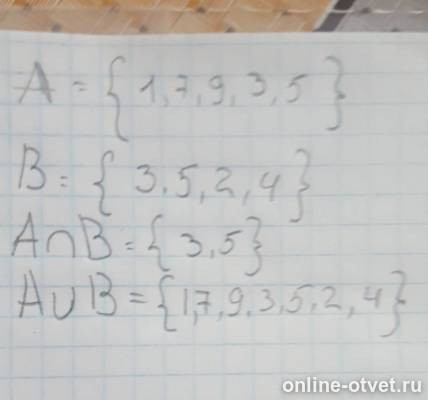 A = { 1, 7, 9, 3, 5 }
B = { 3, 5, 2, 4 }
A∩B = { 3, 5 }
A∪B = { 1, 7, 9, 3, 5, 2, 4 }
online-otvet.ru